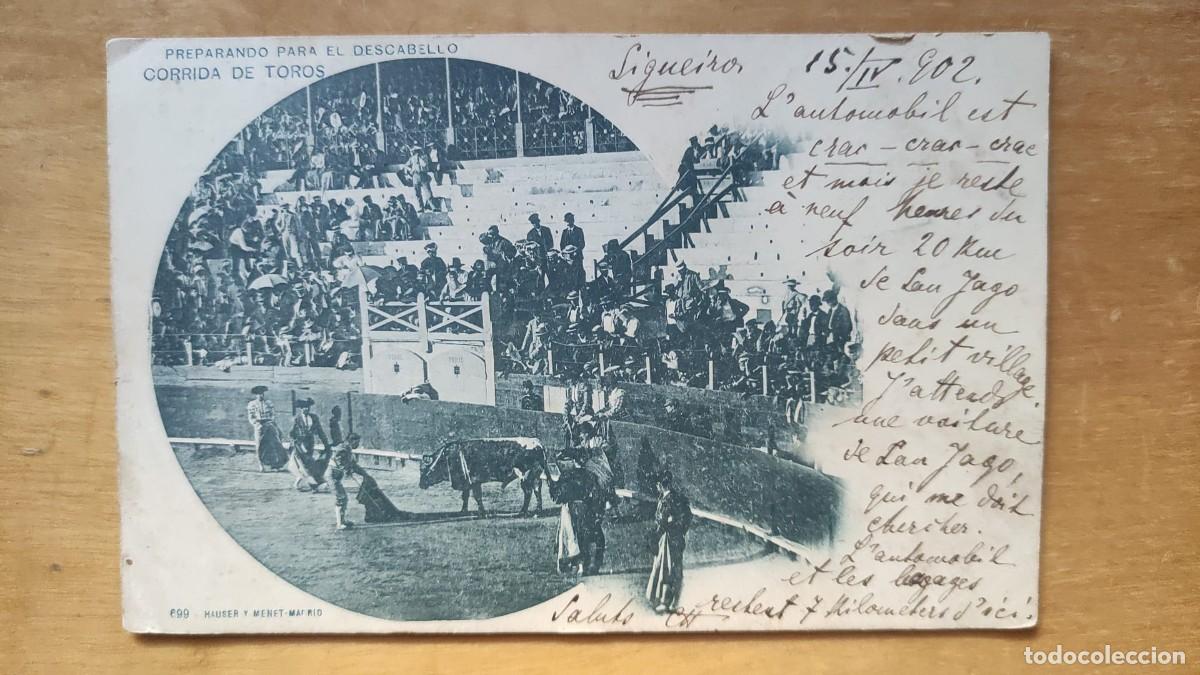 PREPARANDO PARA EL DESCABELLO
CORRIDA DE TOROS
Sigueiro, 15./IV.902.
L'automobil est
crac-crac-crac
et mois je reste
à neuf heures du
soir 20 Km
de San Jago
dans un
petit village.
J'attends
une voiture
de San Jago,
qui me doit
chercher.
L'automobil
et les bagages
restent 7 Kilometers d'ici.
Saluts
699 - HAUSER Y MENET-MADRID
todocoleccion